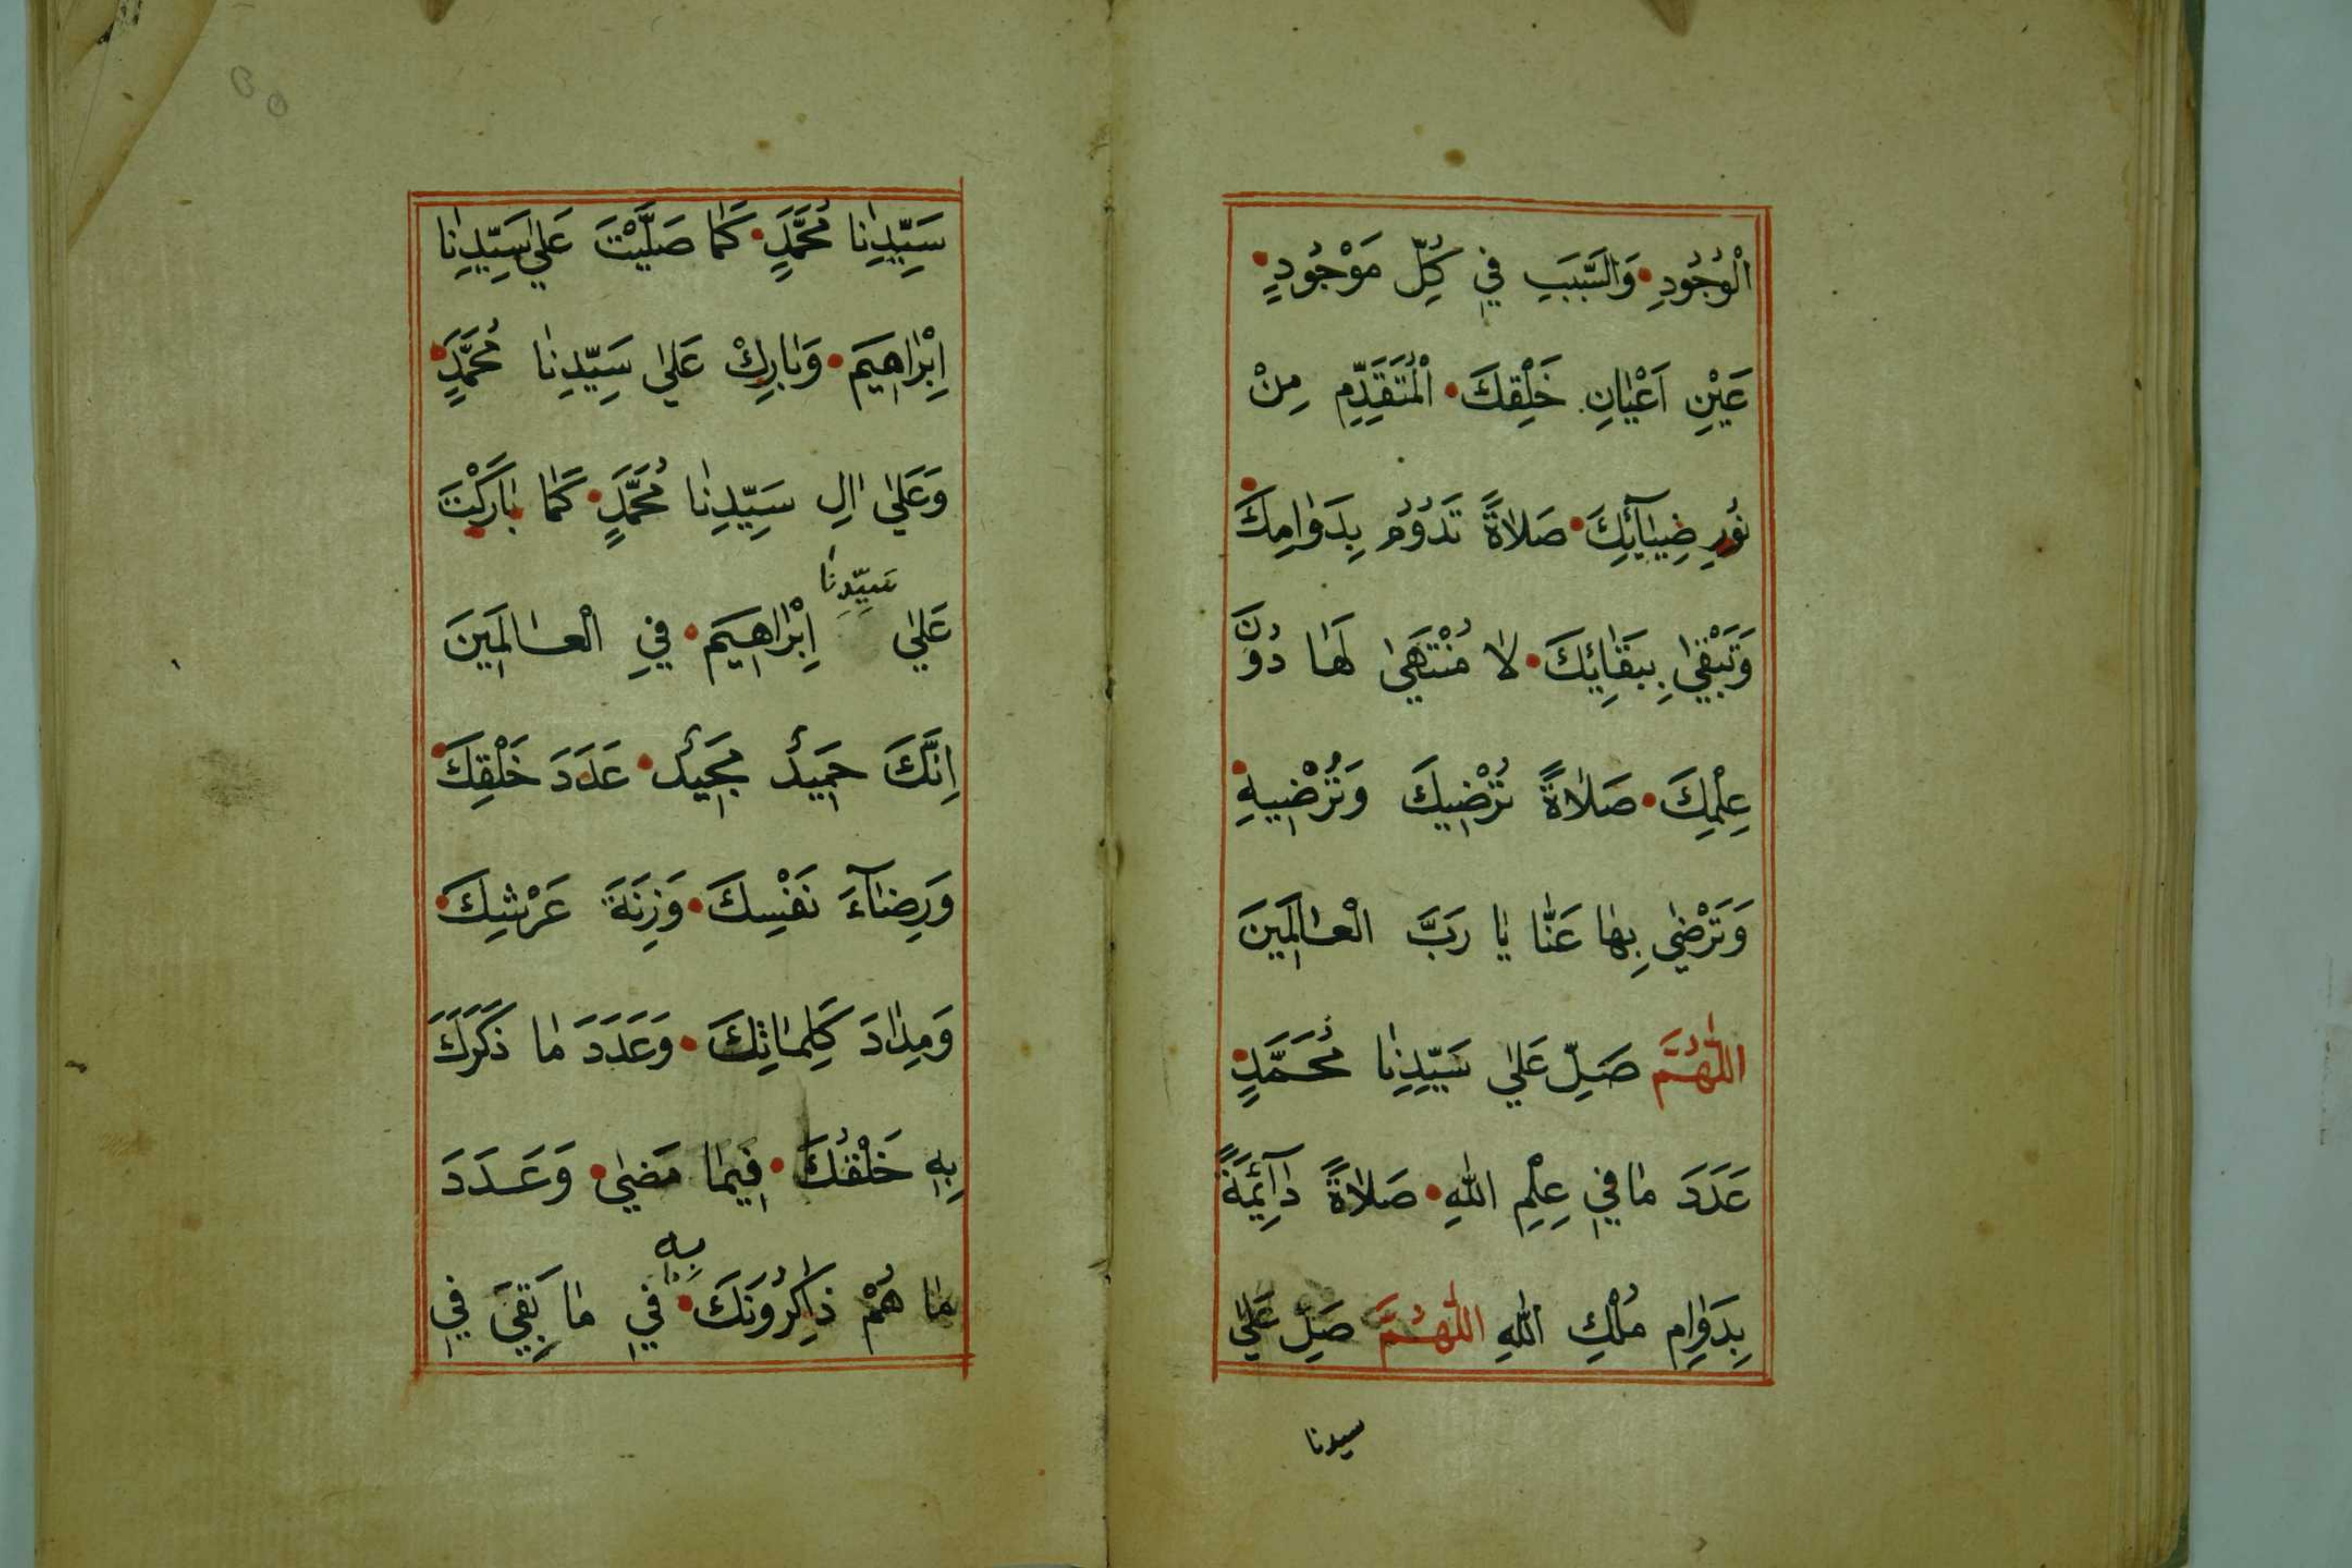 الْوُجُودِ • وَالسَّبَبِ فِي كُلِّ مَوْجُودٍ •
عَيْنِ اَعْيَانِ خَلْقِكَ • الْمُتَقَدِّمِ مِنْ
نُورِ ضِيَآئِكَ • صَلَاةً تَدُوُمُ بِدَوَامِكَ •
وَتَبْقٰى بِبَقَائِكَ • لَا مُنْتَهَى لَهَا دُوُنَ
عِلْمِكَ • صَلَاةً تُرْضِيكَ وَتُرْضِيهِ •
وَتَرْضٰى بِهَا عَنَّا يَا رَبَّ الْعَالَمِينَ
اللّٰهُمَّ صَلِّ عَلٰى سَيِّدِنَا مُحَمَّدٍ •
عَدَدَ مَا فِي عِلْمِ اللّٰهِ • صَلَاةً دَآئِمَةً
بِدَوَامِ مُلْكِ اللّٰهِ اللّٰهُمَّ صَلِّ عَلٰى
سيدنا
سَيِّدِنَا مُحَمَّدٍ • كَمَا صَلَّيْتَ عَلٰى سَيِّدِنَا
اِبْرَاهِيمَ • وَبَارِكْ عَلٰى سَيِّدِنَا مُحَمَّدٍ •
وَعَلٰى اٰلِ سَيِّدِنَا مُحَمَّدٍ • كَمَا بَارَكْتَ
عَلٰى سَيِّدِنَا اِبْرَاهِيمَ • فِي الْعَالَمِينَ
اِنَّكَ حَمِيدٌ مَجِيدٌ • عَدَدَ خَلْقِكَ •
وَرِضَآءَ نَفْسِكَ • وَزِنَةَ عَرْشِكَ •
وَمِدَادَ كَلِمَاتِكَ • وَعَدَدَ مَا ذَكَرَكَ
بِهِ خَلْقُكَ • فِيمَا مَضٰى • وَعَدَدَ
مَا هُمْ ذَاكِرُونَكَ • بِهِ فِي مَا بَقِيَ فِي